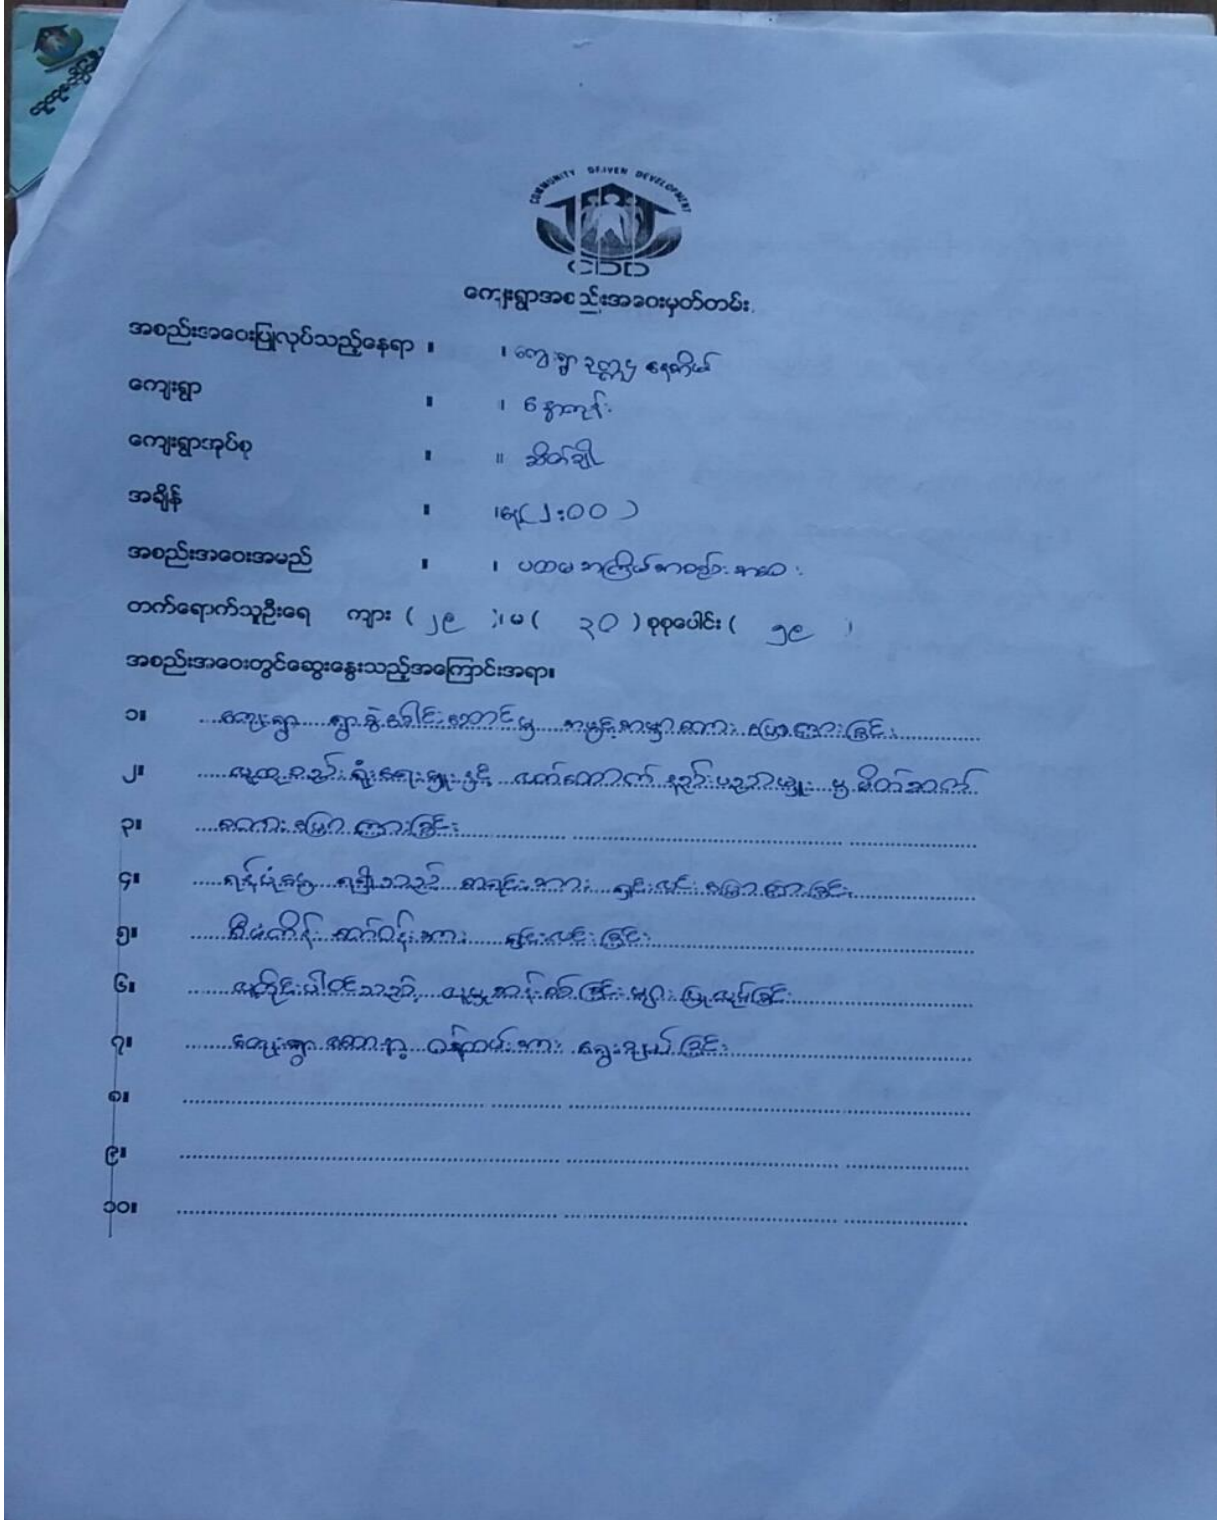 COMMUNITY DRIVEN DEVELOPMENT
CDD
ကျေးရွာအစည်းအဝေးမှတ်တမ်း
အစည်းအဝေးပြုလုပ်သည့်နေရာ ။ ၊ ကျေးရွာ ဥက္ကဌ နေအိမ်
ကျေးရွာ ။ ၊
ကျေးရွာအုပ်စု ။ ။ ဆိတ်ချိုး
အချိန် ။ ၊ နေ့(၂:၀၀ )
အစည်းအဝေးအမည် ။ ၊ ပထမအကြိမ်အစည်းအဝေး
တက်ရောက်သူဦးရေ ကျား ( ၂၉ )၊ မ ( ၃၀ ) စုစုပေါင်း ( ၅၉ )
အစည်းအဝေးတွင်ဆွေးနွေးသည့်အကြောင်းအရာ။
၁။ ကျေးရွာ ရွာခွဲခေါင်းဆောင်မှ အဖွင့်အမှာစကားပြောကြားခြင်း
၂။ လူထုစည်းရုံးရေးမှူးနှင့် လက်ထောက်နည်းပညာမှူးမှ မိတ်ဆက်
၃။ စကားပြောကြားခြင်း
၄။ ရန်ပုံငွေ ရရှိသည့် စာရင်းအား ရှင်းလင်းပြောကြားခြင်း
၅။ စီမံကိန်းဇာတ်ဝန်းအား ရှင်းလင်းခြင်း
၆။ လူတိုင်းပါဝင်သည့် လူမှုဆန်းစစ်ခြင်းများ ပြုလုပ်ခြင်း
၇။ ကျေးရွာစေတနာ့ဝန်ထမ်းအား ရွေးချယ်ခြင်း
၈။
၉။
၁၀။